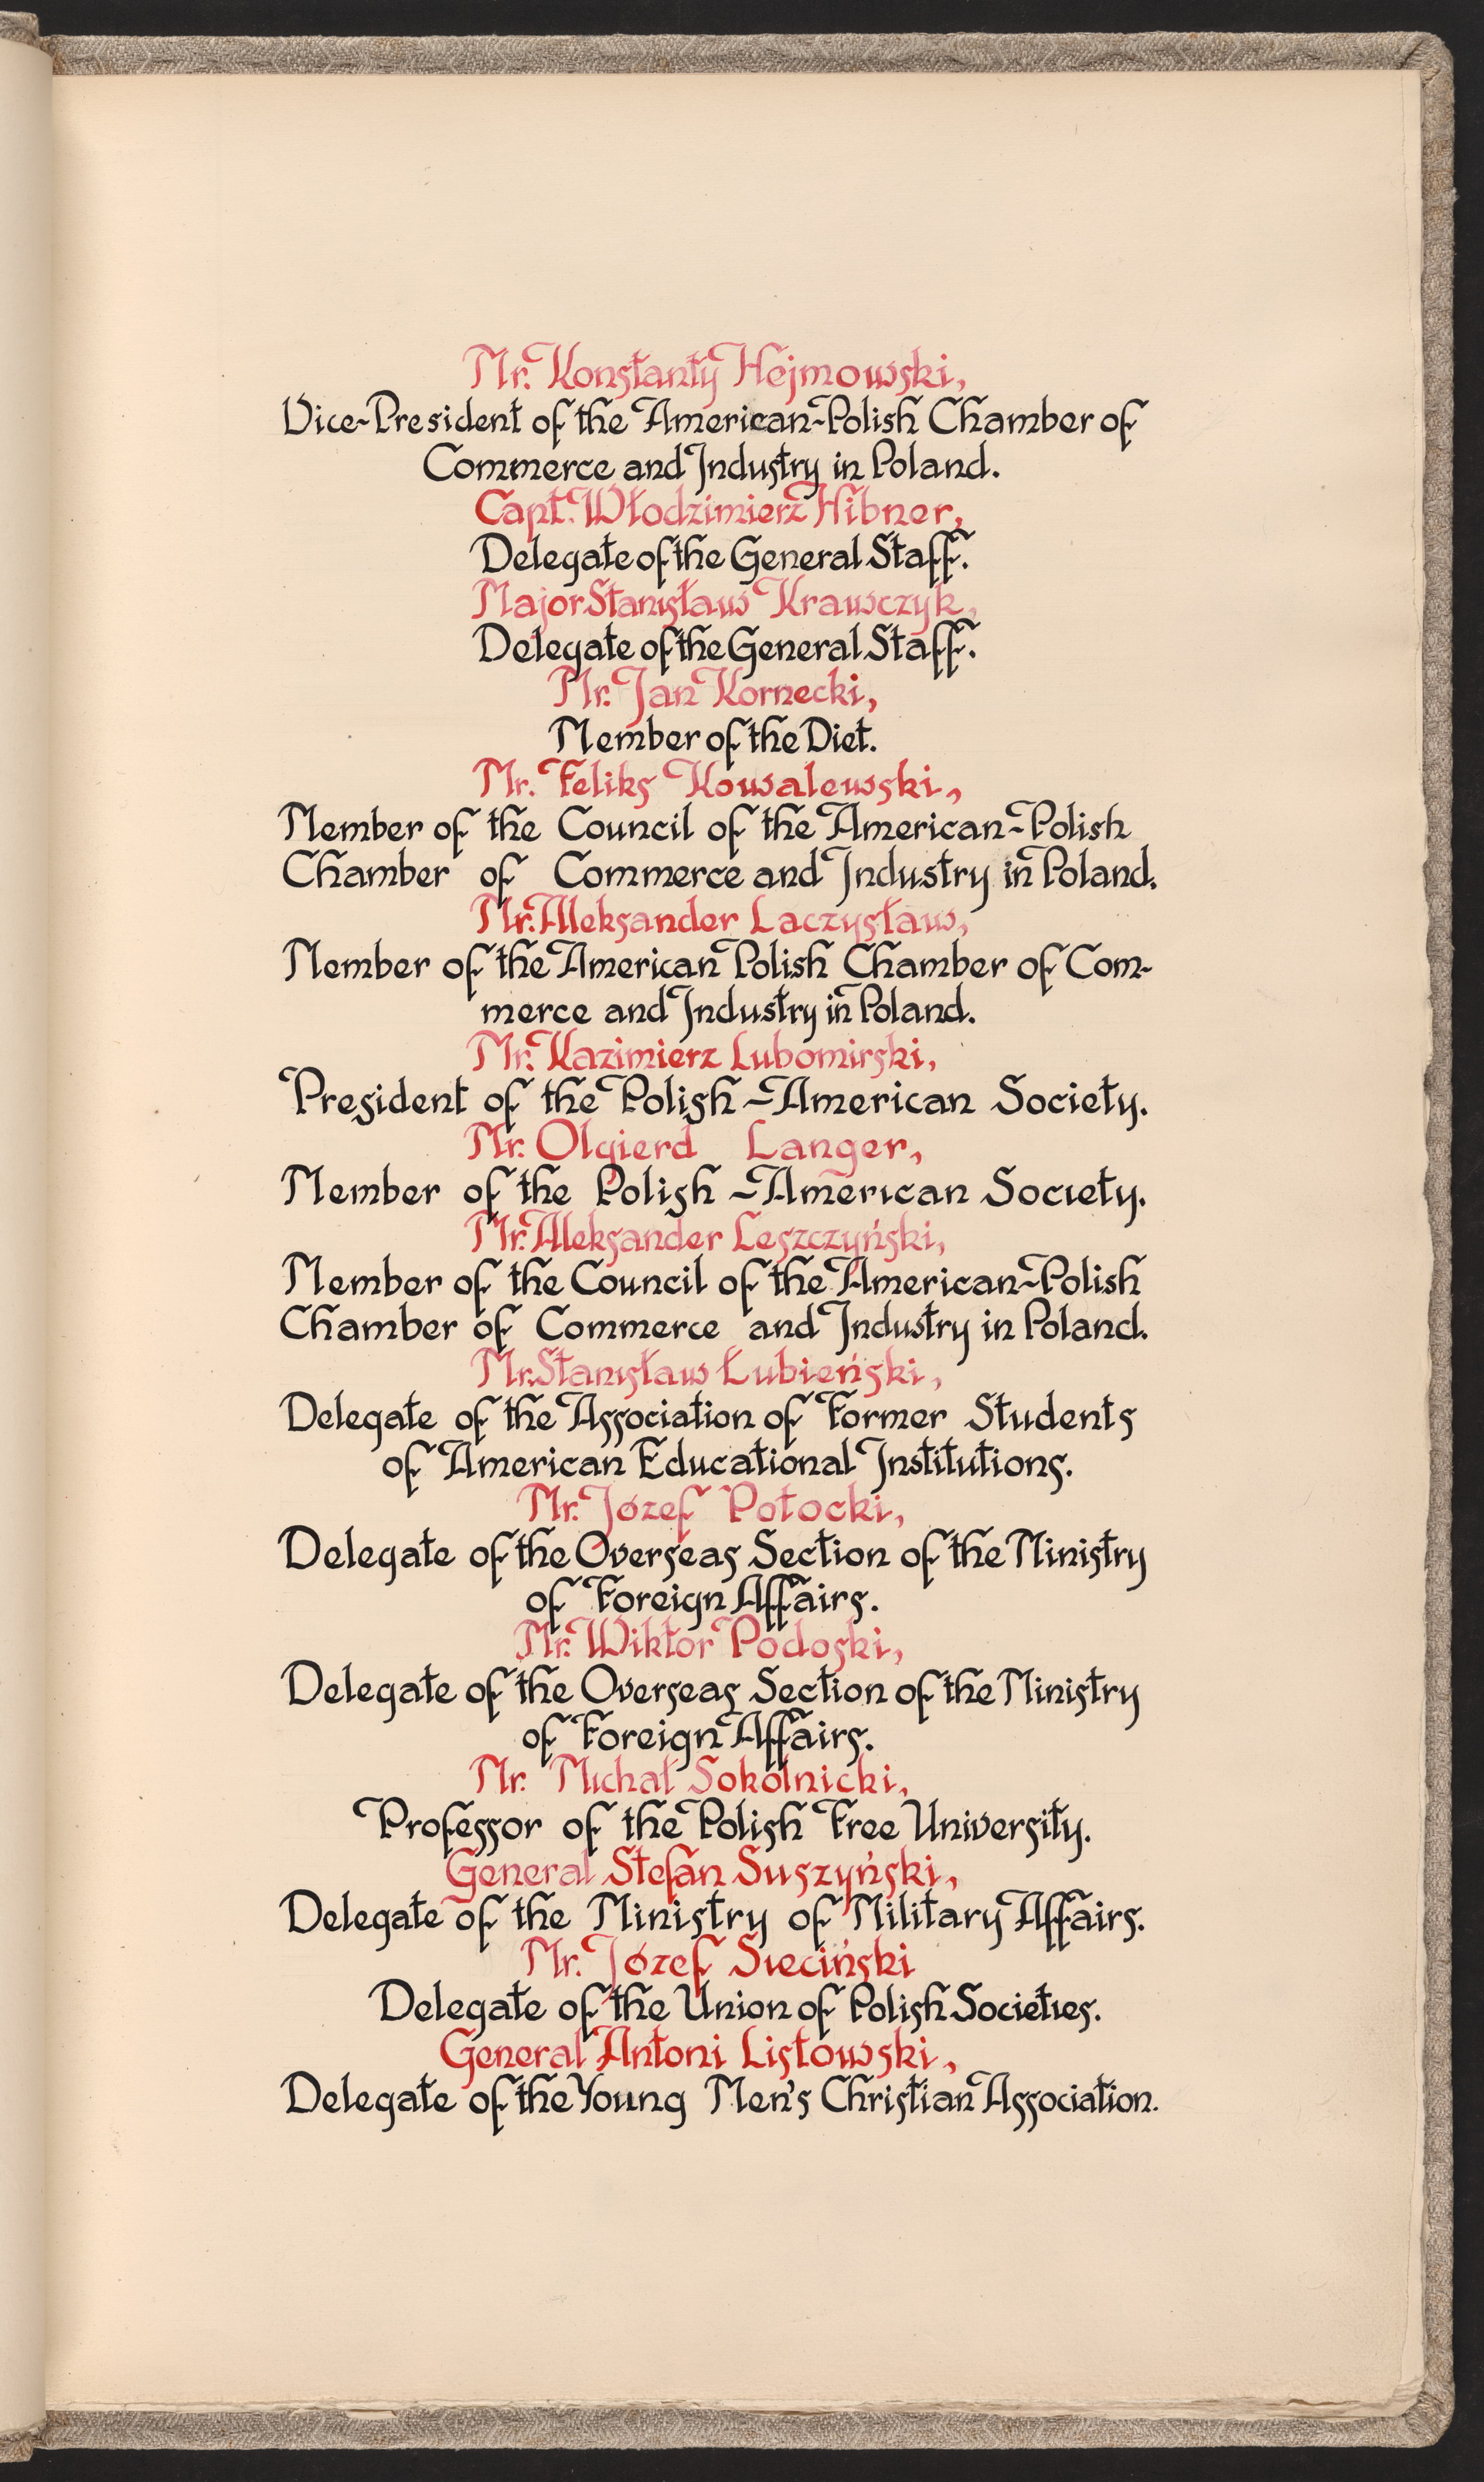 Mr. Konstanty Hejmowski,
Vice-President of the American-Polish Chamber of
Commerce and Industry in Poland.
Capt. Włodzimierz Hibner,
Delegate of the General Staff.
Major Stanisław Krawczyk,
Delegate of the General Staff.
Mr. Jan Kornecki,
Member of the Diet.
Mr. Feliks Kowalewski,
Member of the Council of the American-Polish
Chamber of Commerce and Industry in Poland.
Mr. Aleksander Laczysław,
Member of the American Polish Chamber of Com-
merce and Industry in Poland.
Mr. Kazimierz Lubomirski,
President of the Polish-American Society.
Mr. Olgierd Langer,
Member of the Polish-American Society.
Mr. Aleksander Leszczyński,
Member of the Council of the American-Polish
Chamber of Commerce and Industry in Poland.
Mr. Stanisław Łubieński,
Delegate of the Association of Former Students
of American Educational Institutions.
Mr. Józef Potocki,
Delegate of the Overseas Section of the Ministry
of Foreign Affairs.
Mr. Wiktor Podoski,
Delegate of the Overseas Section of the Ministry
of Foreign Affairs.
Mr. Michał Sokolnicki,
Professor of the Polish Free University.
General Stefan Suszyński,
Delegate of the Ministry of Military Affairs.
Mr. Józef Sieciński
Delegate of the Union of Polish Societies.
General Antoni Listowski,
Delegate of the Young Men's Christian Association.